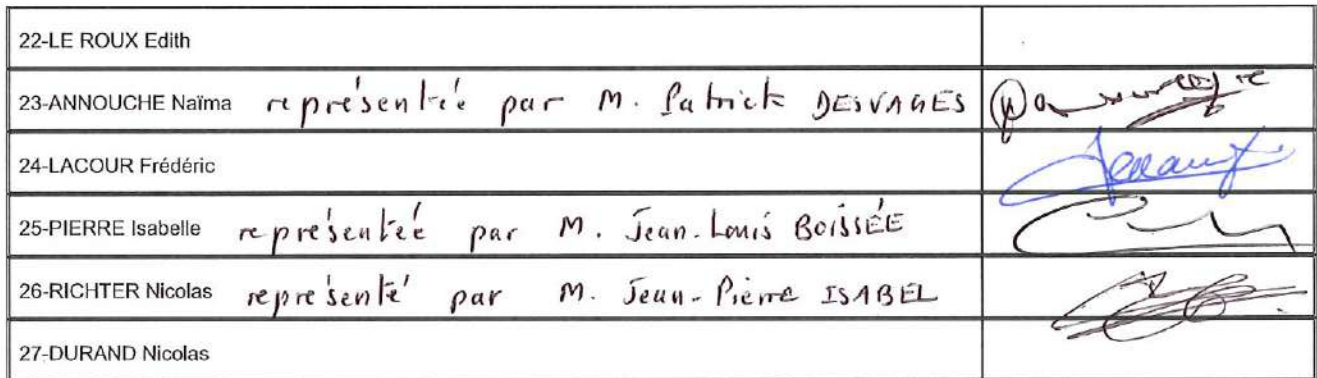 22-LE ROUX Edith
23-ANNOUCHE Naïma représentée par M. Patrick DESVAGES
24-LACOUR Frédéric
25-PIERRE Isabelle représentée par M. Jean-Louis BOISSÉE
26-RICHTER Nicolas représenté par M. Jean-Pierre ISABEL
27-DURAND Nicolas